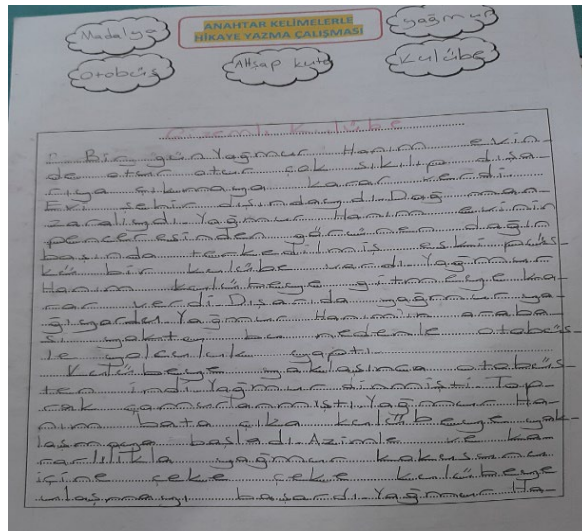 Madalya
ANAHTAR KELİMELERLE
HİKAYE YAZMA ÇALIŞMASI
yağmur
Otobüs
Ahşap kutu
Kulübe
Gizemli Kulübe
Bir gün Yağmur Hanım evin-
de otur otur çok sıkılıp dışa-
rıya çıkmaya karar verdi.
Evi şehir dışındaydı. Dağ man-
zaralıydı. Yağmur Hanım evinin
penceresinden görünen dağın
başında terkedilmiş eski püs-
kü bir kulübe vardı. Yağmur
Hanım kulübeye gitmeye ka-
rar verdi. Dışarıda yağmur ya-
ğıyordu. Yağmur Hanımın araba-
sı yoktu bu nedenle otobüs-
le yolculuk yaptı.
Kulübeye yaklaşınca otobüs-
ten indi. Yağmur dinmişti. Top-
rak çamurlanmıştı. Yağmur Ha-
nım bata çıka kulübeye yak-
laşmaya başladı. Azimle ve ka-
rarlılıkla yağmur kokusunu
içine çeke çeke kulübeye
ulaşmayı başardı. Yağmur Ha-